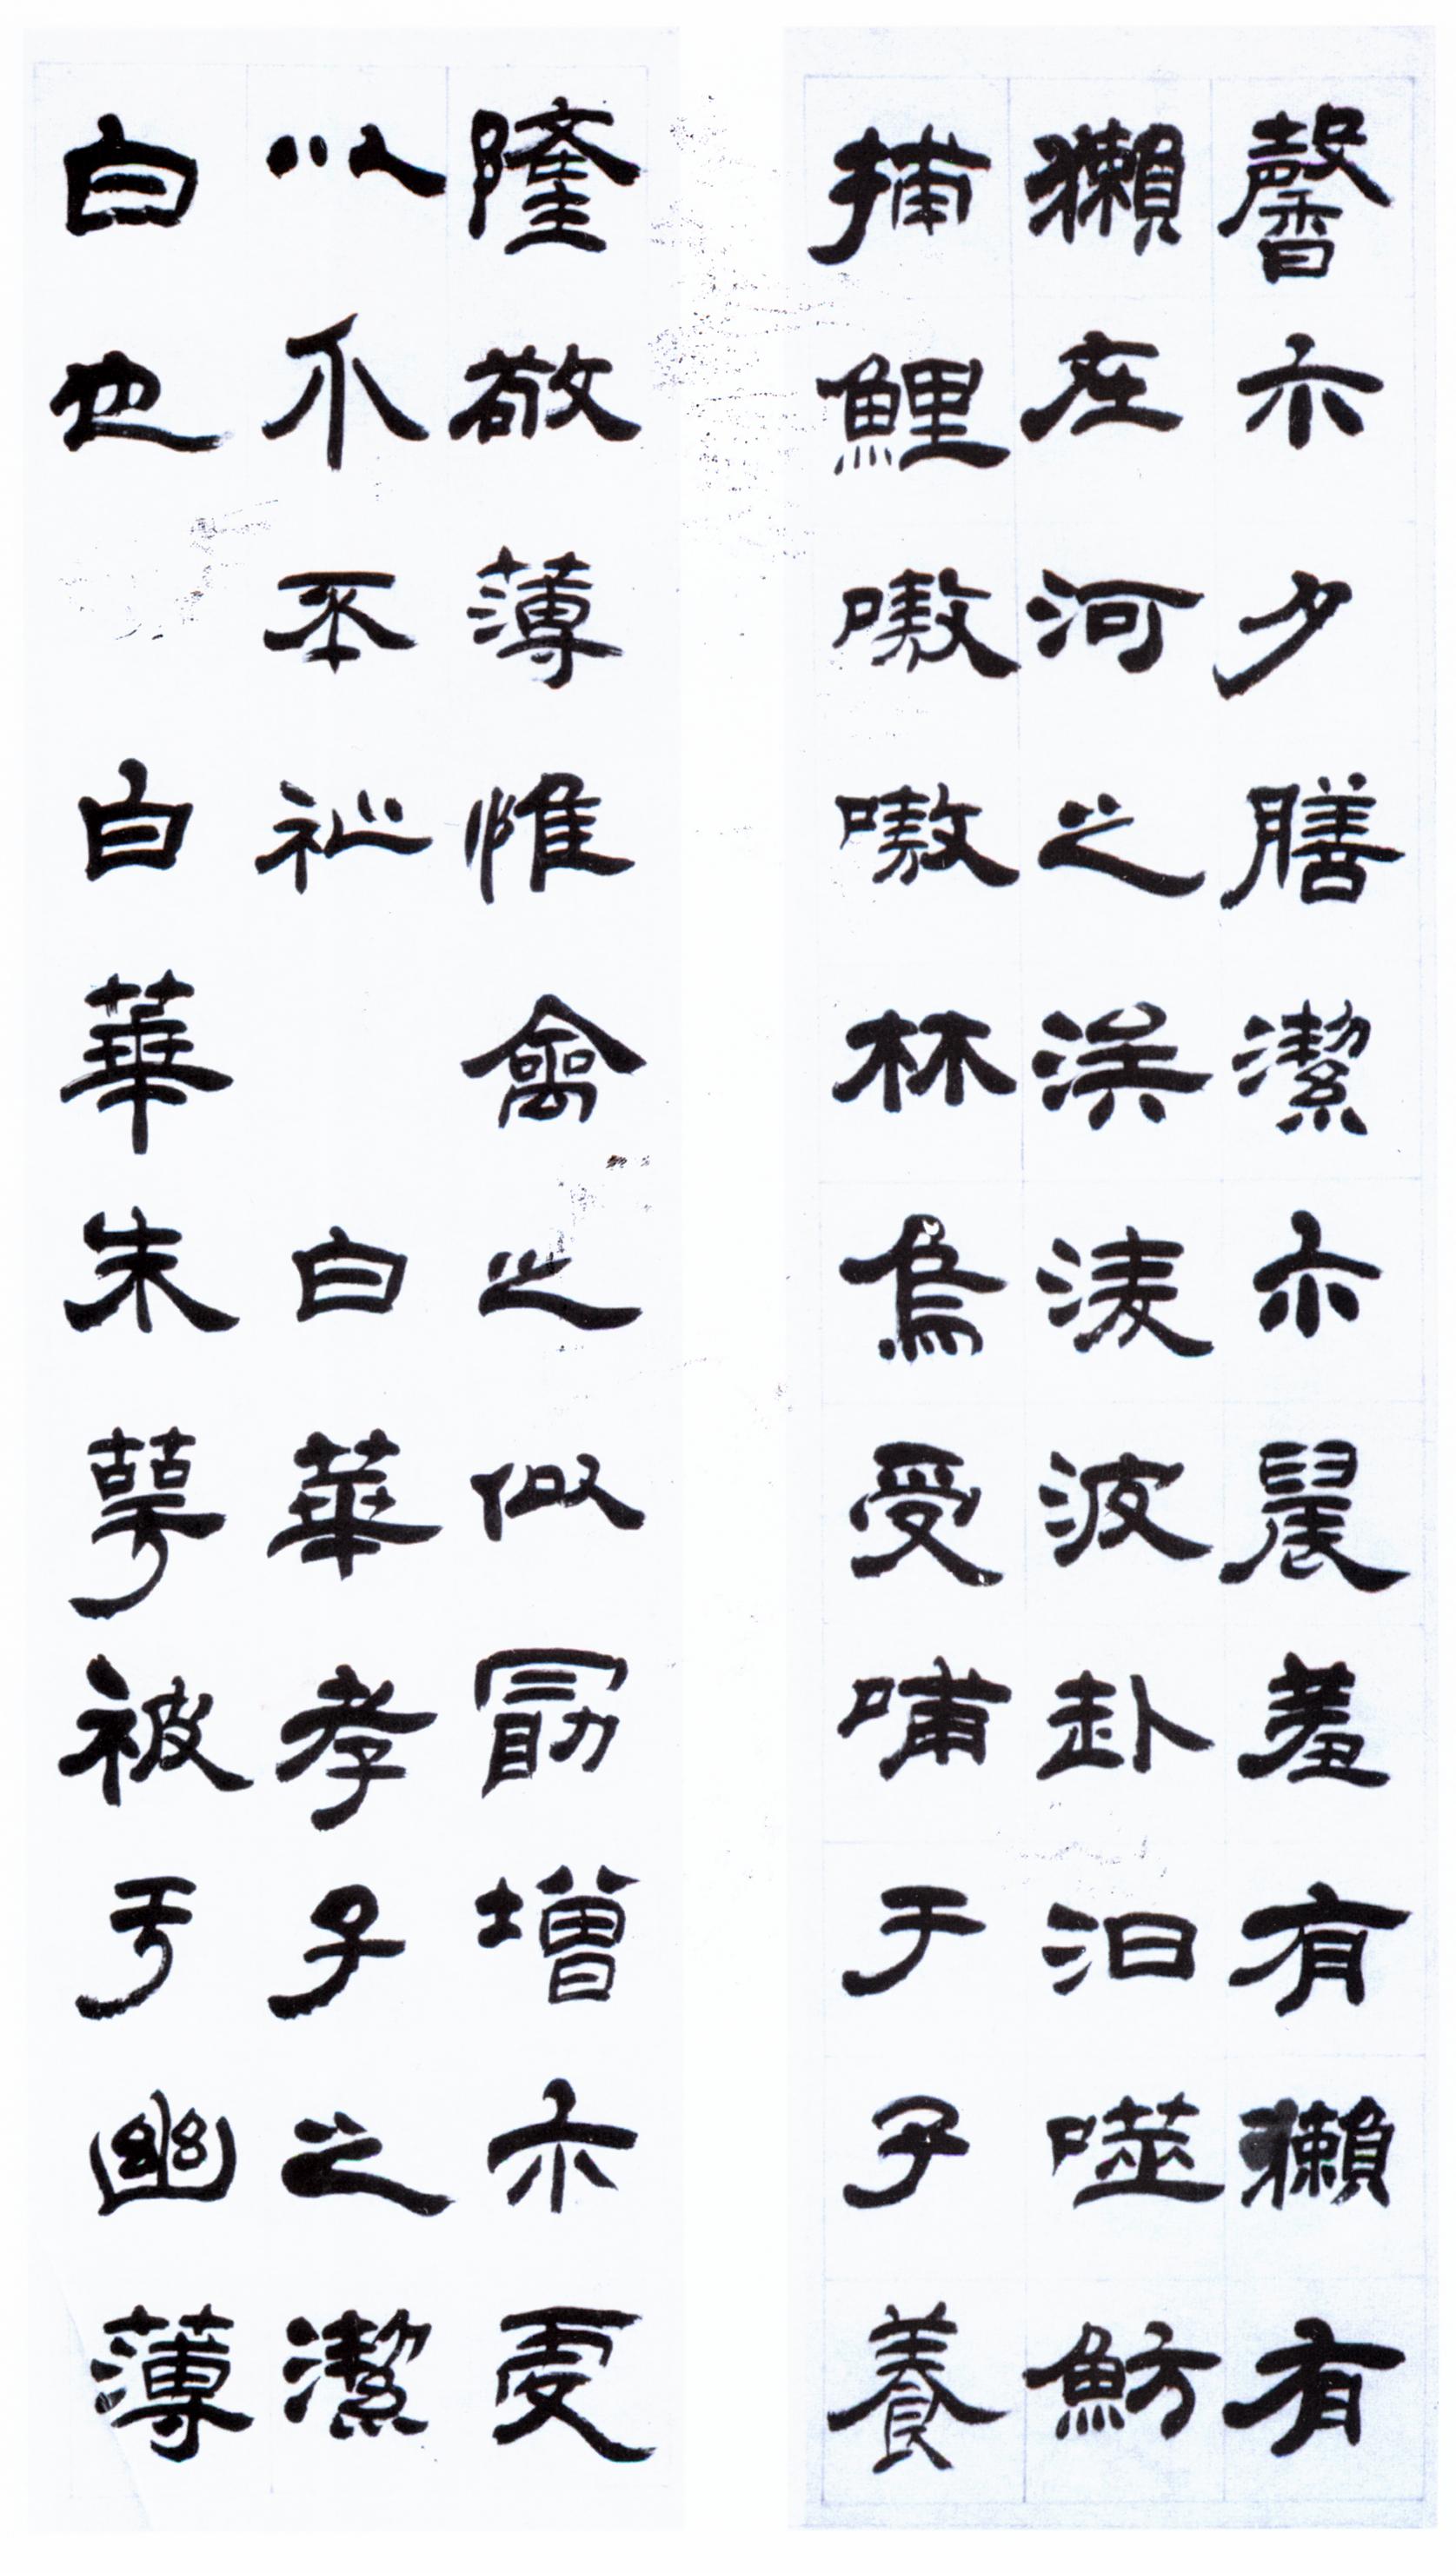 馨尒夕膳潔尒晨羞有獺有
獺在河之涘淩波赴汨噬魴
捕鯉嗷嗷林烏受哺于子養
隆敬薄惟禽之似勖增尒虔
以介丕祉　白華孝子之潔
白也　白華朱萼被于幽薄